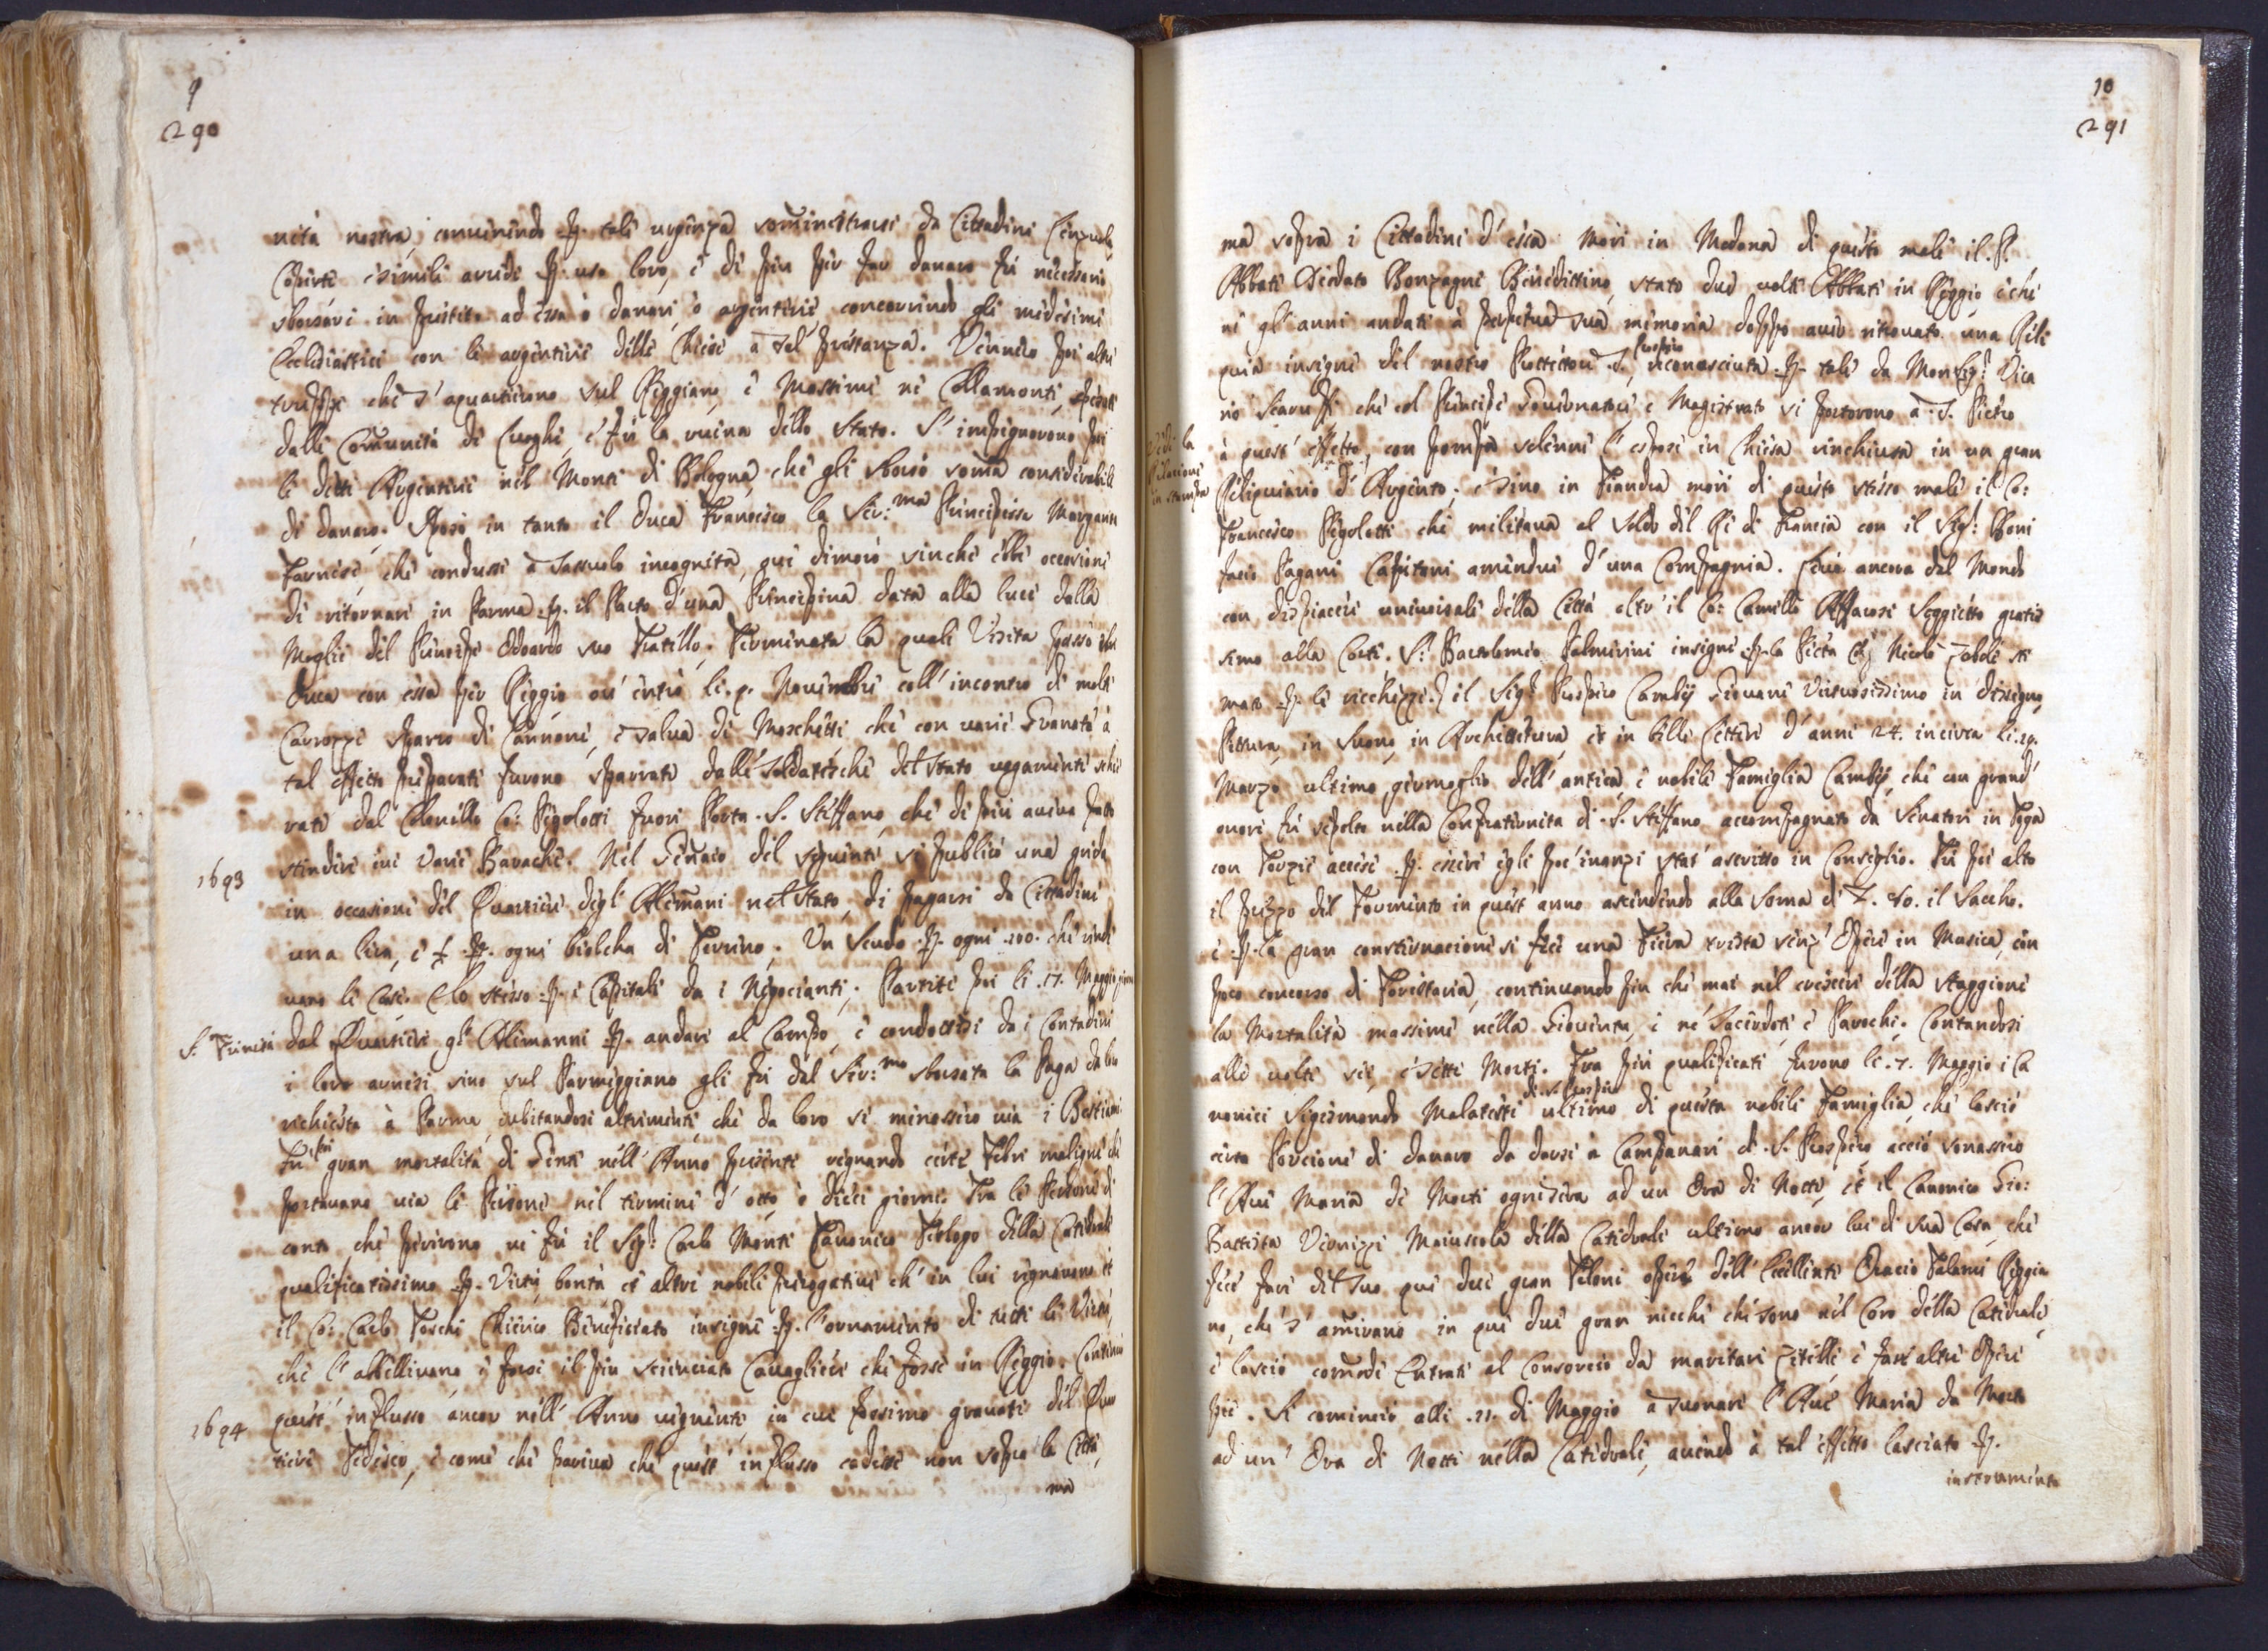 9
290
nità nostra, convenendo p. tale urgenza somministrarsi da Cittadini Lenzuola
Coperte e simili arredi p. uso loro, e di più per far danaro fù necessario
sborsare in prestito ad essa ò danari, ò argenterie concorrendo gli medesimi
Ecclesiastici con le argenterie delle Chiese a tal prestanza. Vennero poi altre
truppe che s'aquartierono sul Reggiano, e Massime ne Collamonti, spesati
dalle Comunità di Luoghi, e fù la ruina dello Stato. S'impegnorono poi
le dette Argenterie nel Monte di Bologna che gli sborsò soma considerabile
di danaro. Sposò in tanto il Duca Francesco la Ser:ma Principessa Margarita
Farnese, che condusse a Sassuolo incognita, qui dimorò sinche ebbe occasione
di ritornare in Parma p. il Parto d'una Principina data alla luce dalla
Moglie del Principe Odoardo suo Fratello. Terminata la quale Visita passò il
Duca con essa per Reggio ove entrò li Novembre coll'incontro di molte
Carozze Sparo di Cannoni, e salva di Moschetti, che con varie Granate à
tal effetto preparate furono sparrate dalle Soldatesche del Stato vagamente schie
rate dal Colonello Co: Rigolotti fuori Porta S. Steffano, che di più aveva fatto
stendere ivi varie Barache. Nel Genaro del seguente si publicò una grida
1693
in occasione del Quartiere degl' Alemani nel Stato, di pagarsi da Cittadini
una lira, e p. ogni biolcha di Terreno. Un Scudo p. ogni 100. che rende
vano le Case. E lo stesso p. i Capitali da i Negocianti. Partiti poi li 17. Maggio
S. Trinità
dal Quartiere gl' Alemanni p. andare al Campo, e condottisi da i Contadini
i loro arnesi sino sul Parmiggiano gli fù dal Ser:mo sborsata la Paga da loro
richiesta à Parma, dubitandosi altrimenti, che da loro si menassero via i Bestiami.
Fù poi gran mortalità di Gente nell'Anno presente regnando certe Febri maligne che
portavano via le Persone nel termine d'otto, ò dieci giorni. Tra le Persone di
conto che perirono vi fù il Sig: Carlo Monti Canonico Teologo della Catedrale
qualificatissimo p. Virtù, bontà et altre nobili prerogative ch' in lui regnavano et
il Co: Carlo Toschi Chierico Beneficiato insigne p. l'ornamento di tutte le Virtù,
che l'abbellivano, e forsi il più scienciato Cavagliere che fosse in Reggio. Continuò
1694
quest' influsso ancor nell'Anno vegnente, in cui fossimo gravati del Quar
tiere Tedesco, e come che pareva che quest' influsso cadesse non sopra la Città,
ma
10
291
ma sopra i Cittadini d'essa. Morì in Modena di questo male il P.
Abbate Diodato Bonzagni Benedittino, stato due volte Abbate in Reggio e che
ne gl' anni andati à perpetua sua memoria doppo aver ritrovato una Reli
quia insigne del nostro Protettore S. Prospero riconosciuta p. tale da Monsig: Vica
rio Scaruffi che col Principe Governatore, e Magistrato vi portorono a S. Pietro
Vedi la
Relatione
in stampa
à quest' effetto, con pompa solenne l'espose in Chiesa rinchiusa in un gran
Reliquiario d'Argento; e sino in Fiandra morì di questo stesso male il Co:
Francesco Rigolotti che militava al Soldo del Rè di Francia con il Sig: Boni
facio Pagani Capitani amendue d'una Compagnia. ancora dal Mondo
con dispiacere universale della Città oltr' il Co: Camillo Affarosi Soggietto gratis
simo alla Corte. S: Bartolomeo Palmerini insigne p. la Pietà et Nicolò sti
mato p. le ricchezze. il Sig: Prospero Cambij Giovane Virtuosissimo in dissegno,
Pittura, in Suono, in Architettura, et in belle Lettere d'anni 24. incirca li 29.
Marzo ultimo germoglio dell' antica, e nobile Famiglia Cambij, che con grand'
onore fù sepolto nella Confraternita di S. Steffano accompagnato da Senatori in Toga
con Torzie accese p. essere egli poc' inanzi stat' ascritto in Consiglio. Fù poi alto
il prezzo del Formento in quest'anno ascendendo alla Soma di L. 80. il Saccho.
e p. la gran consternacione si fece una Fiera trista senz' Opere in Musica, con
poco concorso di Foristaria, continuando più che mai nel crescere della Staggione
la Mortalità massime nella Gioventù, e ne' Sacerdoti e Parochi. Contandosi
alle volte sei, e sette Morti. Tra più qualificati furono li 7. Maggio i Ca
nonici Sigismondo Malatesti di S. Prospero ultimo di questa nobile Famiglia, che lasciò
certa Porcione di danaro da darsi à Campanari di S. Prospero acciò sonassero
l'Ave Maria de Morti ogni sera ad un Ora di Notte, et il Canonico Gio:
Battista Vernizzi Maiuscola della Catedrale ultimo ancor lui di sua Casa, che
fece fare del suo que due gran Teloni opera dell' Eccellente Oracio Talami Reggia
no, che s'amirano in que due gran nicchi che sono nel Coro della Catedrale,
e lasciò comode Entrate al Consorcio da maritare Zitelle, e fare altre Opere
pie. Si cominciò alli .21. di Maggio a suonare l'Ave Maria da Morto
ad un' Ora di Notte nella Catedrale, avendo à tal effetto lasciato p.
instrumento